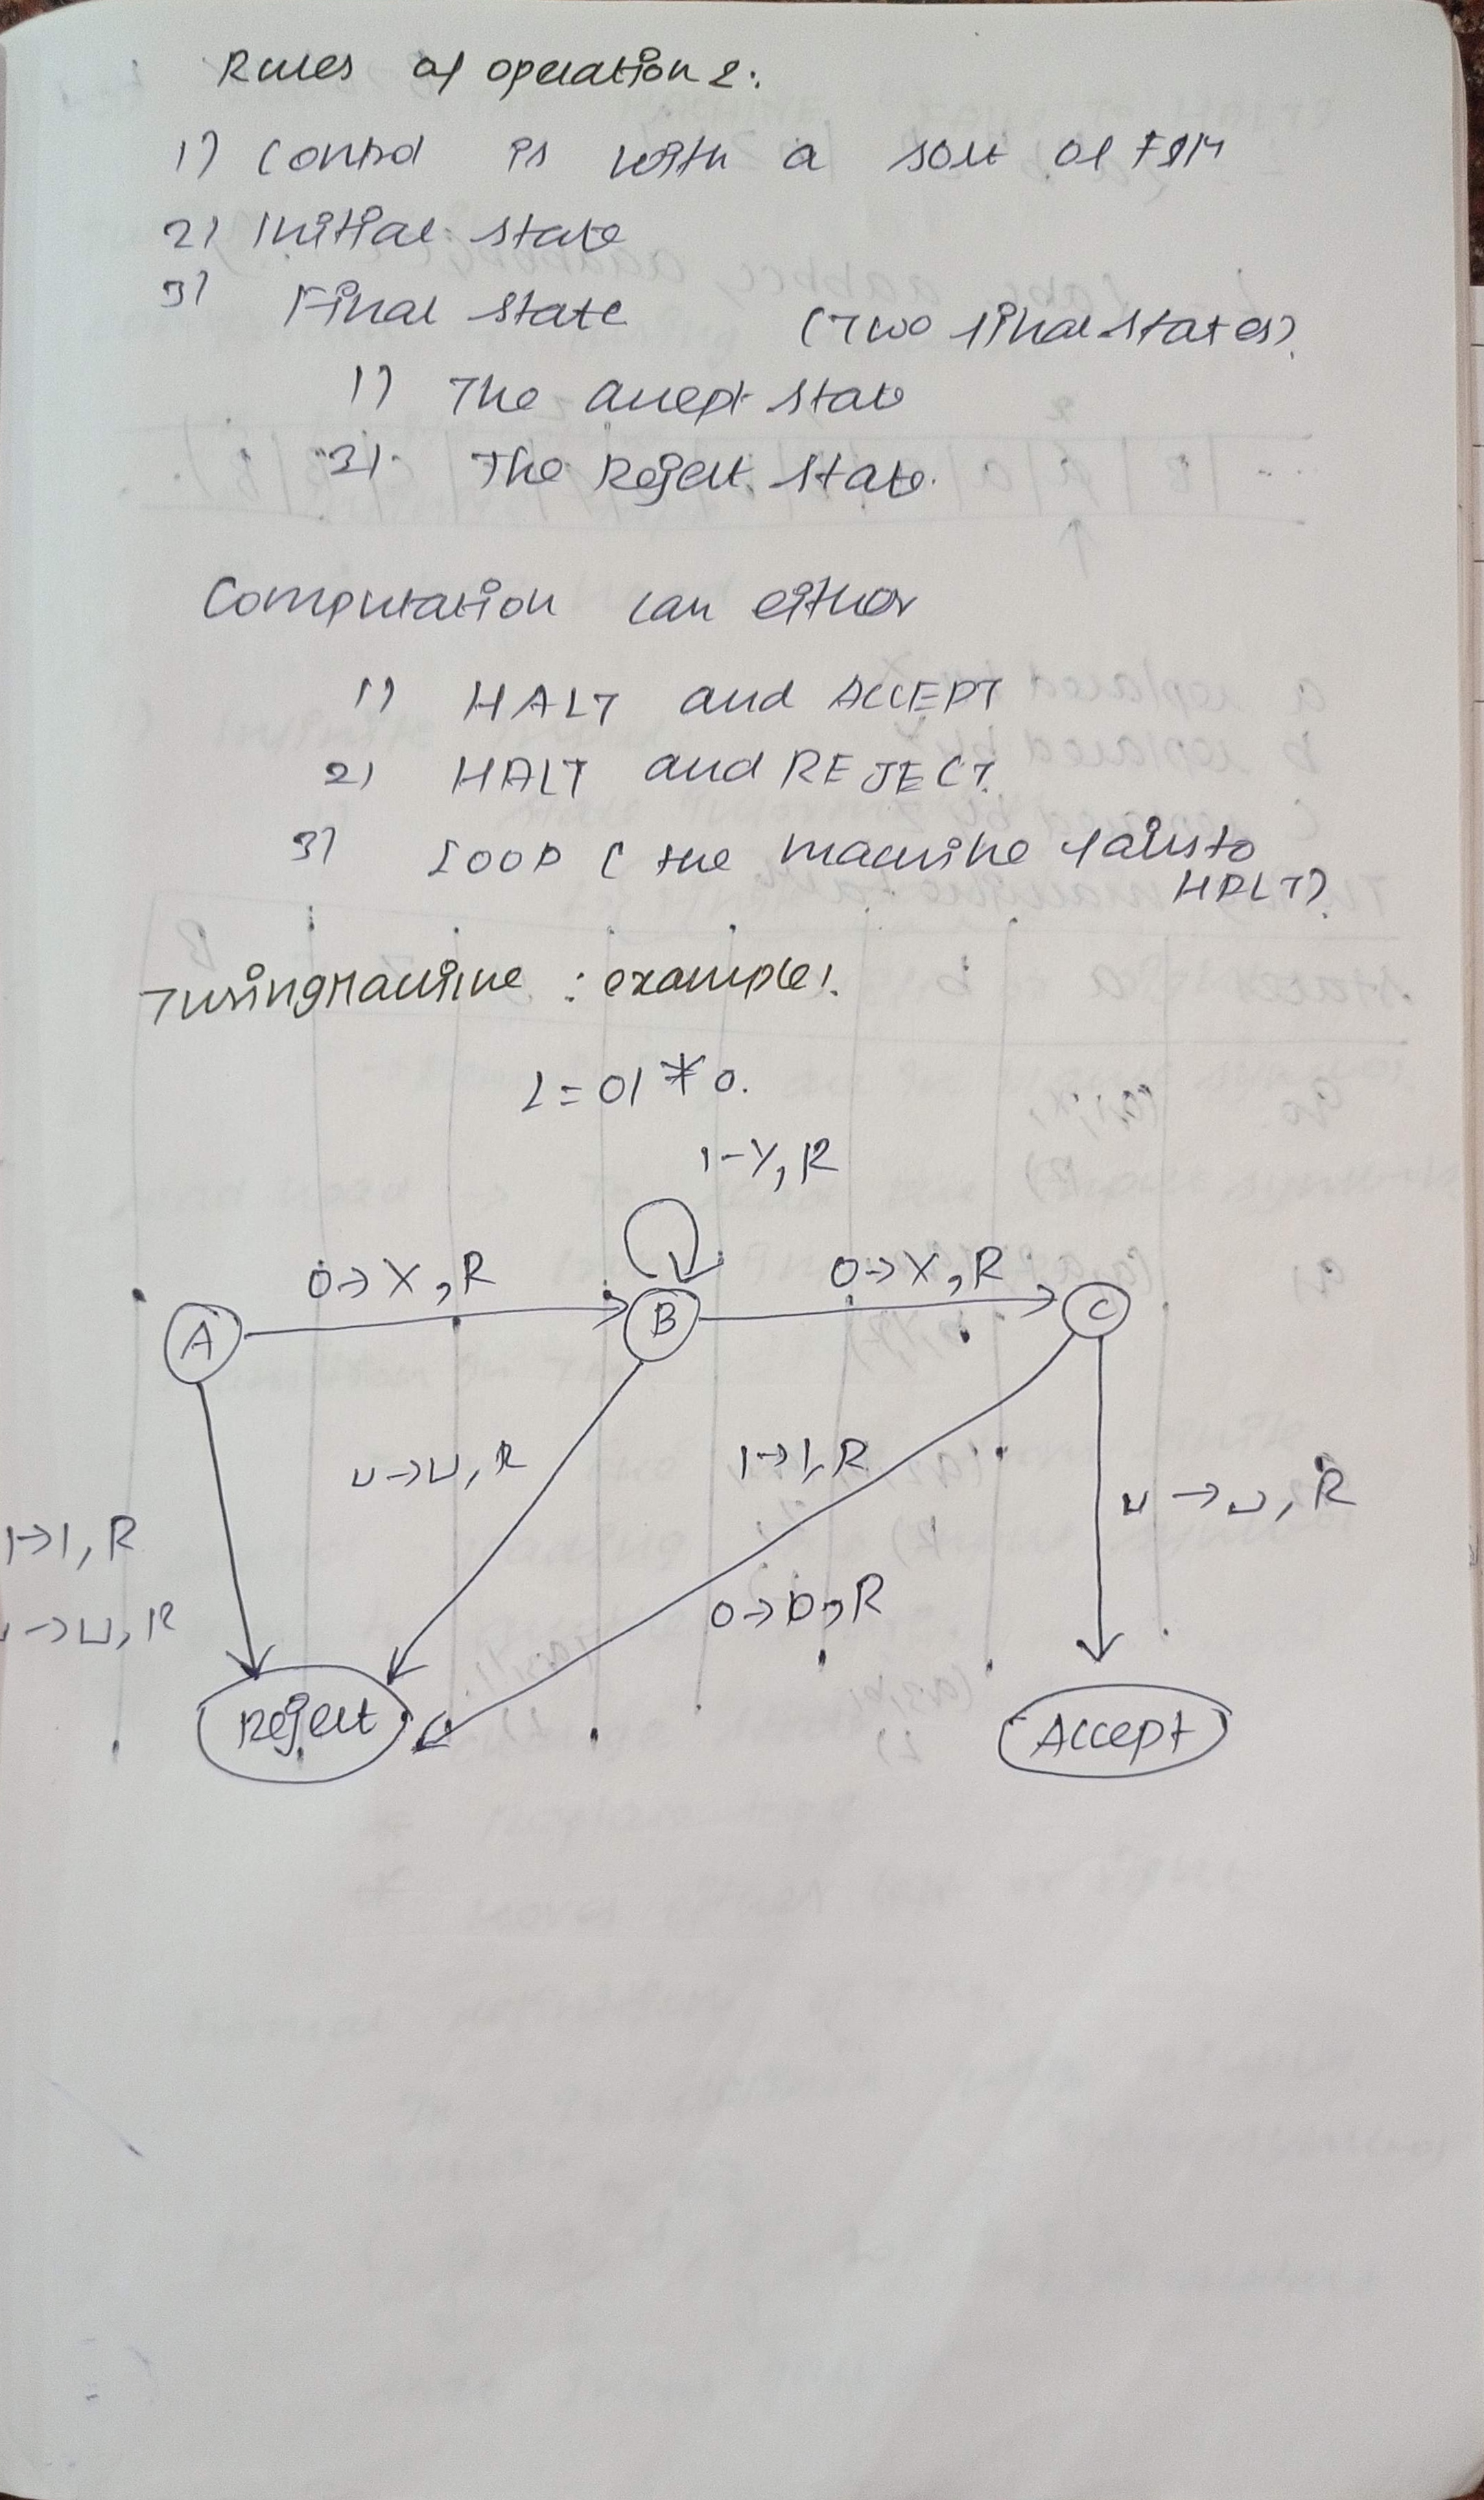 Rules of operation 2:
1) Control is with a sort of FSM
2) Initial state
3) Final state (Two final states).
1) The accept state
2) The Reject state.
Computation can either
1) HALT and ACCEPT
2) HALT and REJECT.
3) LOOP ( the machine fails to
HALT).
Turing Machine : example1.
L = 01*0.
1-Y, R
0→X, R 0→X, R
A B C
⊔→⊔, R 1→1, R ⊔→⊔, R
1→1, R
⊔→⊔, R 0→0, R
Reject Accept